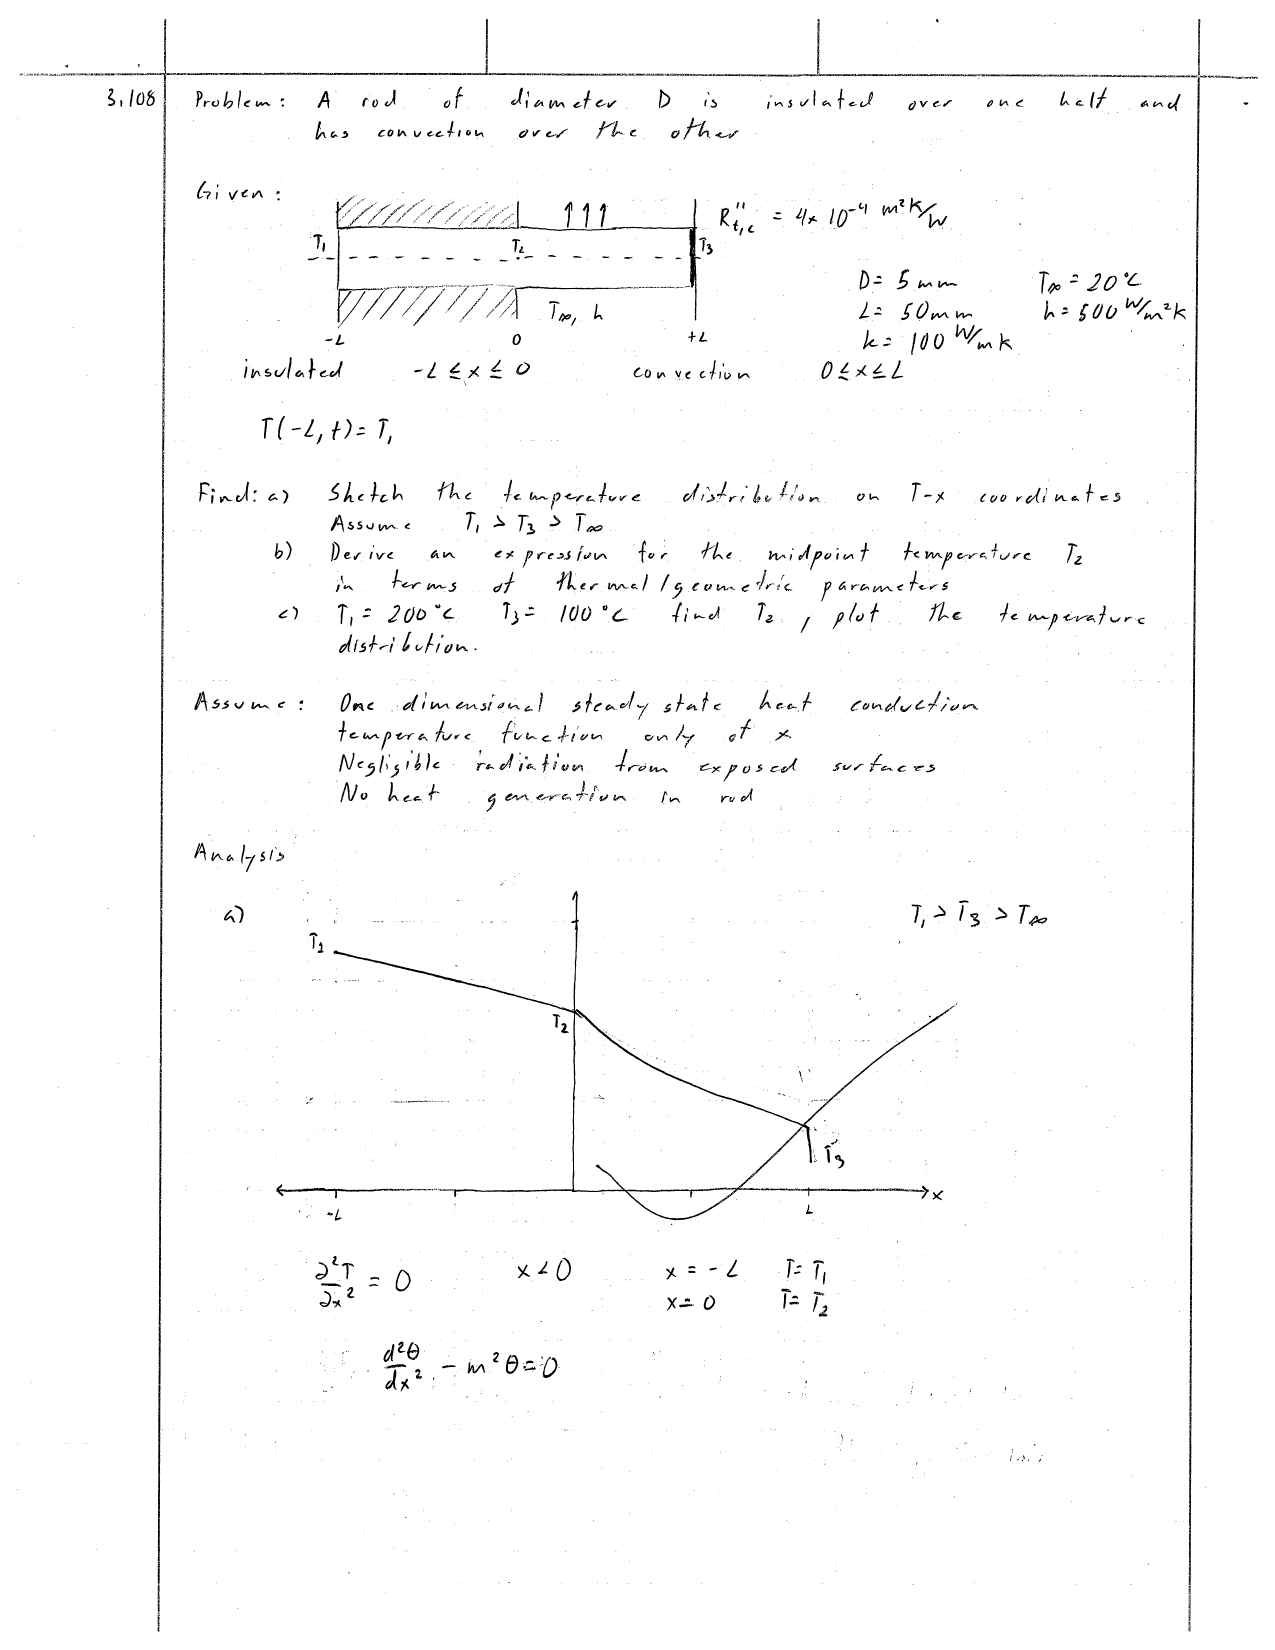 3.108 Problem: A rod of diameter D is insulated over one half and
has convection over the other
Given:
R''t,c = 4x 10^-4 m²K/W
T1 T2 T3
D= 5mm T∞ = 20°C
T∞, h L= 50mm h= 500 W/m²K
-L 0 +L k= 100 W/mK
insulated -L ≤ x ≤ 0 convection 0 ≤ x ≤ L
T(-L, t) = T1
Find: a) Sketch the temperature distribution on T-x coordinates
Assume T1 > T3 > T∞
b) Derive an expression for the midpoint temperature T2
in terms of thermal/geometric parameters
c) T1 = 200°C T3 = 100°C find T2, plot the temperature
distribution.
Assume: One dimensional steady state heat conduction
temperature function only of x
Negligible radiation from exposed surfaces
No heat generation in rod
Analysis
a) T1 > T3 > T∞
T1
T2
T3
x
-L L
∂²T/∂x² = 0 x<0 x = -L T= T1
x= 0 T= T2
d²θ/dx² - m²θ = 0